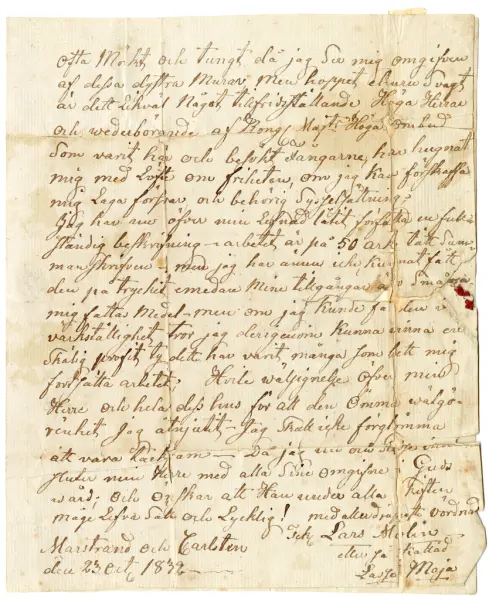 ofta Mökt och tungt då jag Ser mig omgifven
af dessa dystra Murar Men hoppet ehuru Svagt
är dett likväl Något tillfridsställande Höga Herrar
och wederbörande af Kong Majts Höga ombud
Som varit här och besökt Fångarne, har hugnat
mig med Löfte om friheten, om jag kan förskaffa
mig Laga försvar och behörig Sysselsättning.
Jag har nu öfver min Lefnad låtit författa en full
ständig beskrifning - arbetet är på 50 ark tätt Sam
manskrifven - men jag har ännu icke kunnat fått
den på trycket emedan Mine tillgångar är Små
mig fattas Medel - men om jag kunde få den i
värkställighet tror jag derigenom kunna vinna en
Skälig profit ty dett har varit många Som bett mig
fortsätta arbetet. Hvile wälsignelse öfver min
Herre och hela dess hus för all den Ömma wälgö
renhet Jag åtnjutit - Jag Skall icke förglömma
att vara tacksam - Då jag nu
Sluter min Herre med alla Sine omgifne i Guds
ward; och önskar att Han under alla
måge Lefva Sält och Lycklig! med
Lars Molin
Marstrand och Carlsten eller så kallad
den 23 1832 Lasse Maja